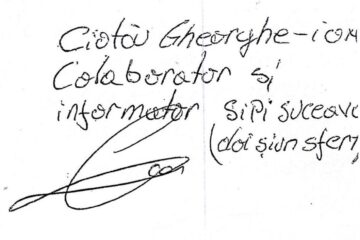 Ciotău Gheorghe-ion
Colaborator și
informator SIPI Suceava
(doi și un sfert